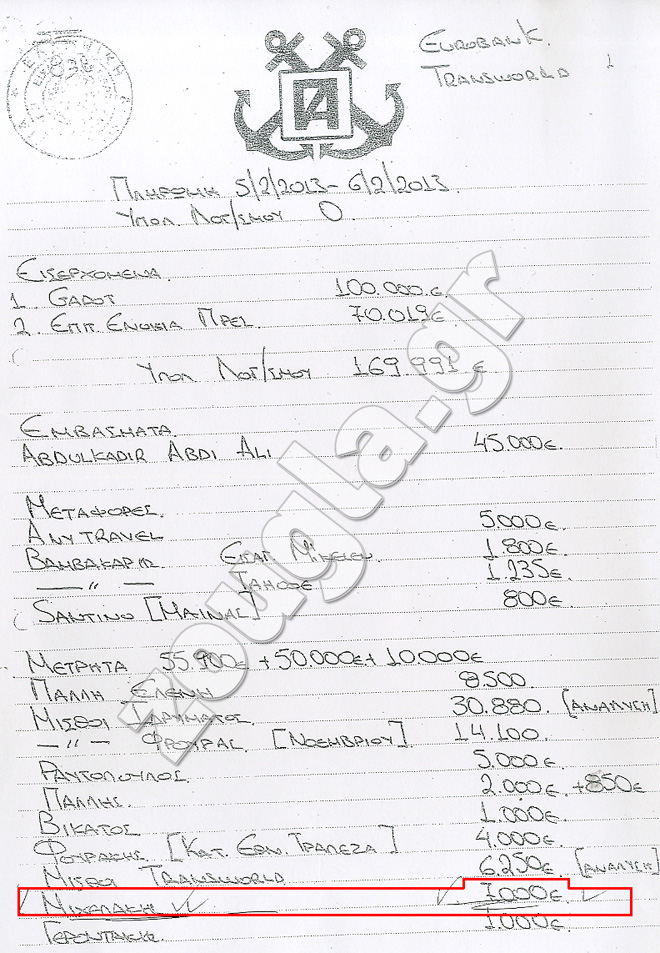 EUROBANK
TRANSWORLD 1
ΠΛΗΡΩΜΗ 5/2/2013-6/2/2013.
ΥΠΟΛ ΛΟΓ/ΣΜΟΥ 0.
ΕΙΣΕΡΧΟΜΕΝΑ.
1. GADOT 100.000.€.
2. ΕΠΙΤ. ΕΝΟΙΚΙΑ ΠΡΕΣ. 70.019€
ΥΠΟΛ ΛΟΓ/ΣΜΟΥ 169.991 €
ΕΜΒΑΣΜΑΤΑ.
ABDULKADIR ABDI ALI 45.000€.
ΜΕΤΑΦΟΡΕΣ. 5000€.
ANY TRAVEL 1.800€.
ΒΑΜΒΑΚΑΡΗΣ 1.235€.
— " —
SANTINO [ΜΑΙΝΑΣ] 800€
ΜΕΤΡΗΤΑ 55.900€ +50.000€+ 10.000€
ΠΑΛΛΗ ΕΛΕΝΗ 8.500.
ΜΙΣΘΟΙ ΙΔΡΥΜΑΤΟΣ. 30.880. [ΑΝΑΛΥΣΗ]
— " — ΦΡΟΥΡΑΣ. [ΝΟΕΜΒΡΙΟΥ]. 14.100.
ΡΑΥΤΟΠΟΥΛΟΣ. 5.000€.
ΠΑΛΛΗΣ. 2.000€. +850€
ΒΙΚΑΤΟΣ 1.000€.
ΦΟΥΡΑΚΗΣ [ΚΑΤ. ΕΘΝ. ΤΡΑΠΕΖΑ] 4.000€.
ΜΙΣΘΟΙ TRANSWORLD. 6.250€ [ΑΝΑΛΥΣΗ]
ΜΙΧΕΛΑΚΗ 1000€.
ΓΕΡΟΝΤΑΚΗΣ. 1.000€.
zougla.gr